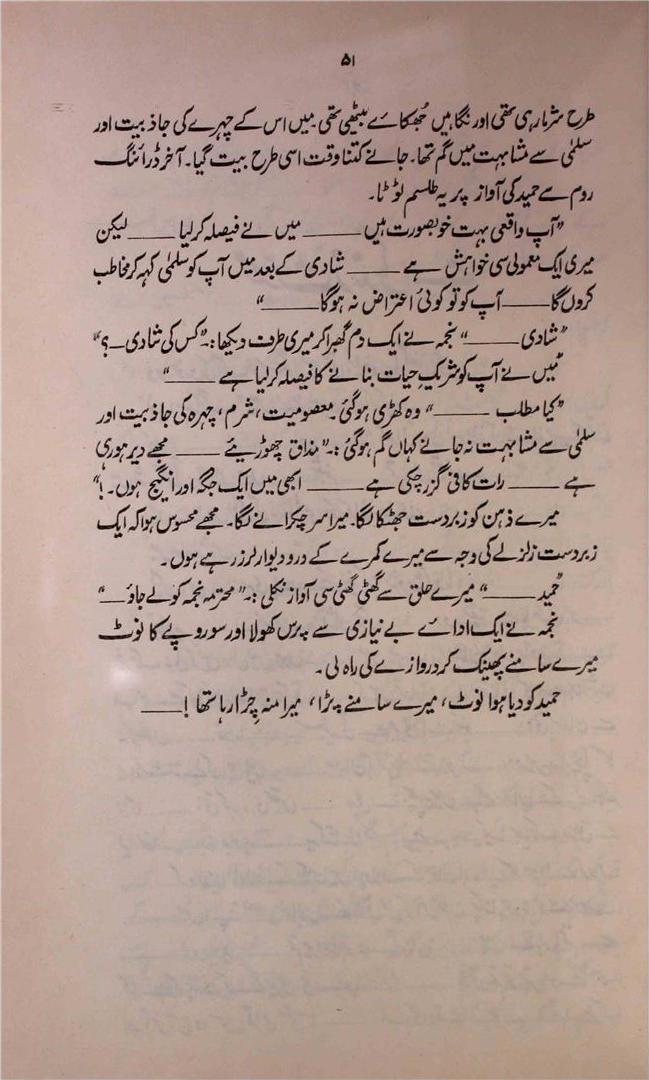 ۵۱
طرح شرما رہی تھی اور نگاہیں جُھکائے بیٹھی تھی۔ میں اس کے چہرے کی جاذبیت اور
سلمٰی سے مشابہت میں گم تھا۔ جانے کتنا وقت اسی طرح بیت گیا۔ آخر ڈرائنگ
روم سے حمید کی آواز پر یہ طلسم ٹوٹا۔
”آپ واقعی بہت خوبصورت ہیں ـــــــ میں نے فیصلہ کرلیا ـــــــ لیکن
میری ایک معمولی سی خواہش ہے ـــــــ شادی کے بعد میں آپ کو سلمٰی کہہ کر مخاطب
کروں گا ـــــــ آپ کو تو کوئی اعتراض نہ ہوگا ـــــــ“
”شادی ـــــــ“ نجمہ نے ایک دم گھبرا کر میری طرف دیکھا :۔ ”کس کی شادی ــ ؟“
”میں نے آپ کو شریکِ حیات بنانے کا فیصلہ کرلیا ہے ـــــــ“
”کیا مطلب ـــــــ“ وہ کھڑی ہوگئی۔ معصومیت، شرم، چہرہ کی جاذبیت اور
سلمٰی سے مشابہت نہ جانے کہاں گم ہوگئی :۔ ”مذاق چھوڑیئے ـــــــ مجھے دیر ہوری
ہے ـــــــ رات کافی گزر چکی ہے ـــــــ ابھی میں ایک جگہ اور انگیج ہوں۔!“
میرے ذہن کو زبردست جھٹکا لگا۔ میرا سر چکرانے لگا۔ مجھے محسوس ہوا کہ ایک
زبردست زلزلے کی وجہ سے میرے کمرے کے در و دیوار لرز رہے ہوں۔
”حمید ـــــــ“ میرے حلق سے گھٹی گھٹی سی آواز نکلی :۔ ”محترمہ نجمہ کو لے جاؤ ــ“
نجمہ نے ایک اداے بے نیازی سے پرس کھولا اور سو روپے کا نوٹ
میرے سامنے پھینک کر دروازے کی راہ لی۔
حمید کو دیا ہوا نوٹ، میرے سامنے پڑا، میرا منہ چِڑا رہا تھا ! ـــــــ